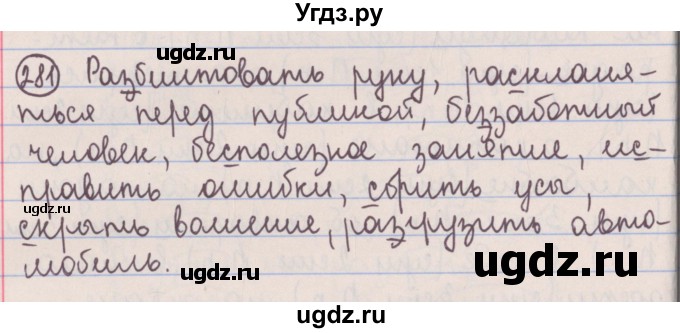 Угдз.ру
281 Разбинтовать руку, раскланя-
ться перед публикой, беззаботный
человек, бесполезное занятие, ис-
править ошибки, сбрить усы,
скрыть волнение, разгрузить авто-
мобиль.
ugdz.ru
ugdz.ru
ugdz.ru
ugdz.ru
ugdz.ru
ugdz.ru
ugdz.ru
ugdz.ru